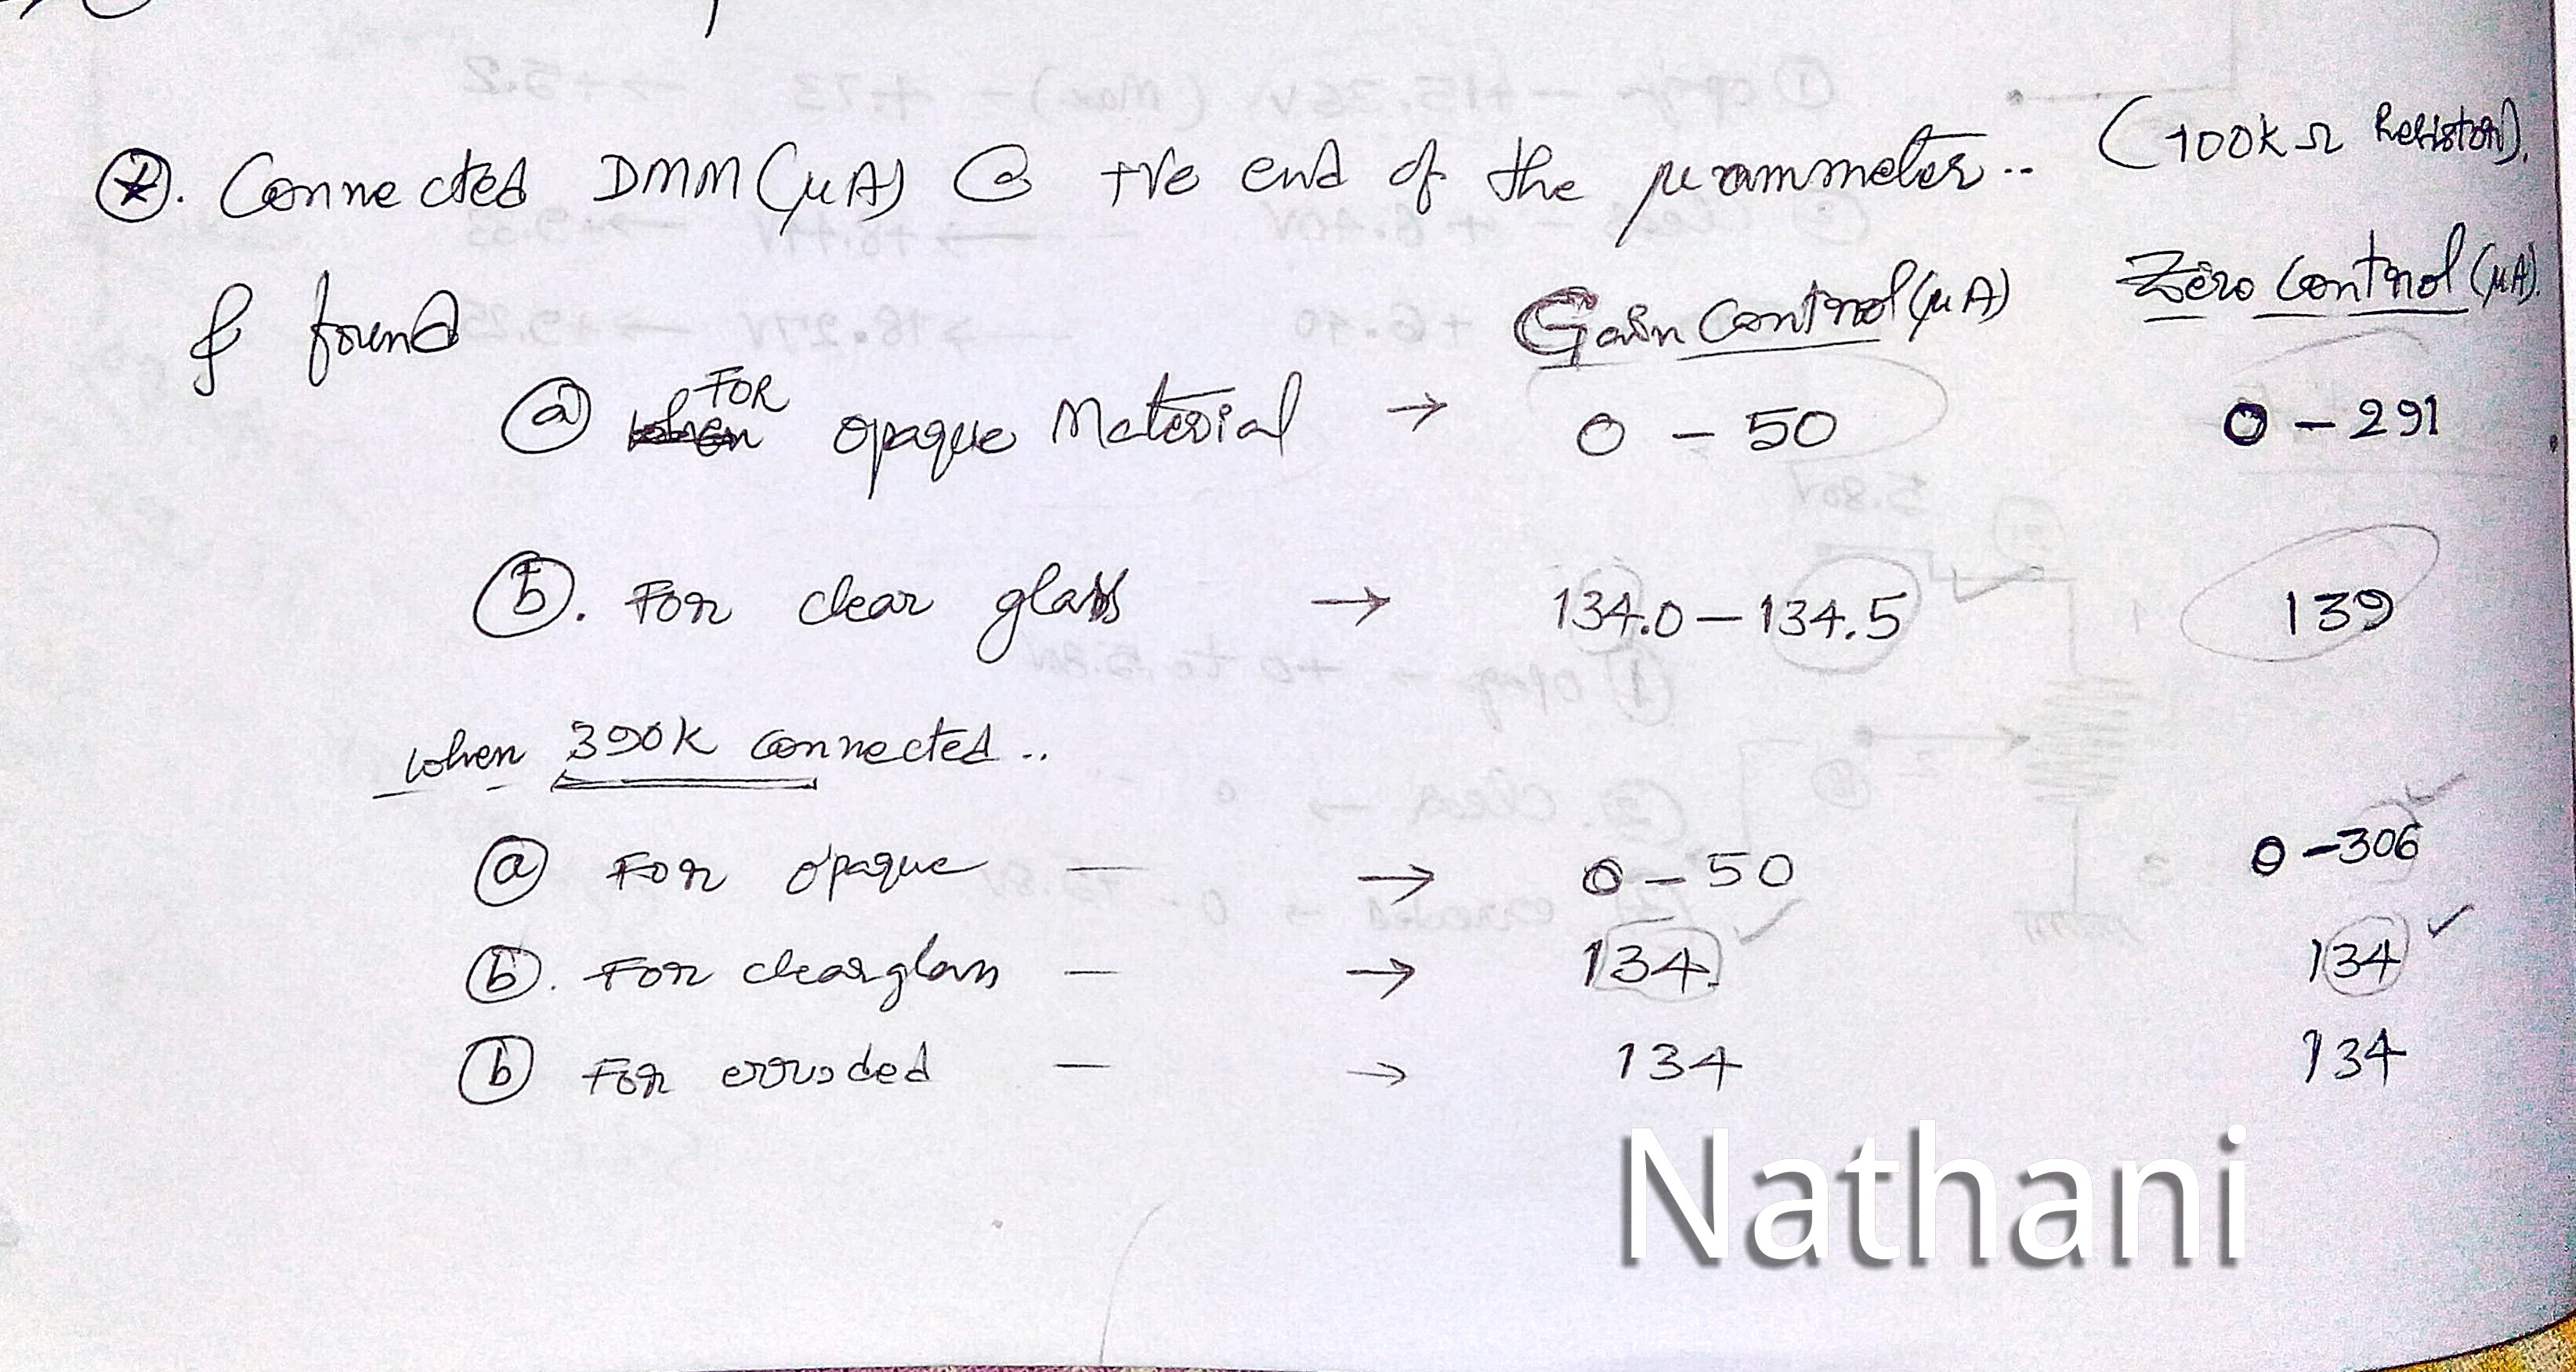 (*). Connected DMM (μA) @ +ve end of the μ ammeter.. (100kΩ Resistor).
& found Gain Control (μA) Zero Control (μA).
(a) FOR opaque Material → 0 – 50 0 – 291
(b). For clear glass → 134.0 – 134.5 139
when 390K connected..
(a) For opaque — → 0 – 50 0 – 306
(b). For clear glass — → 134. 134
(b) For erroded — → 134 134
Nathani